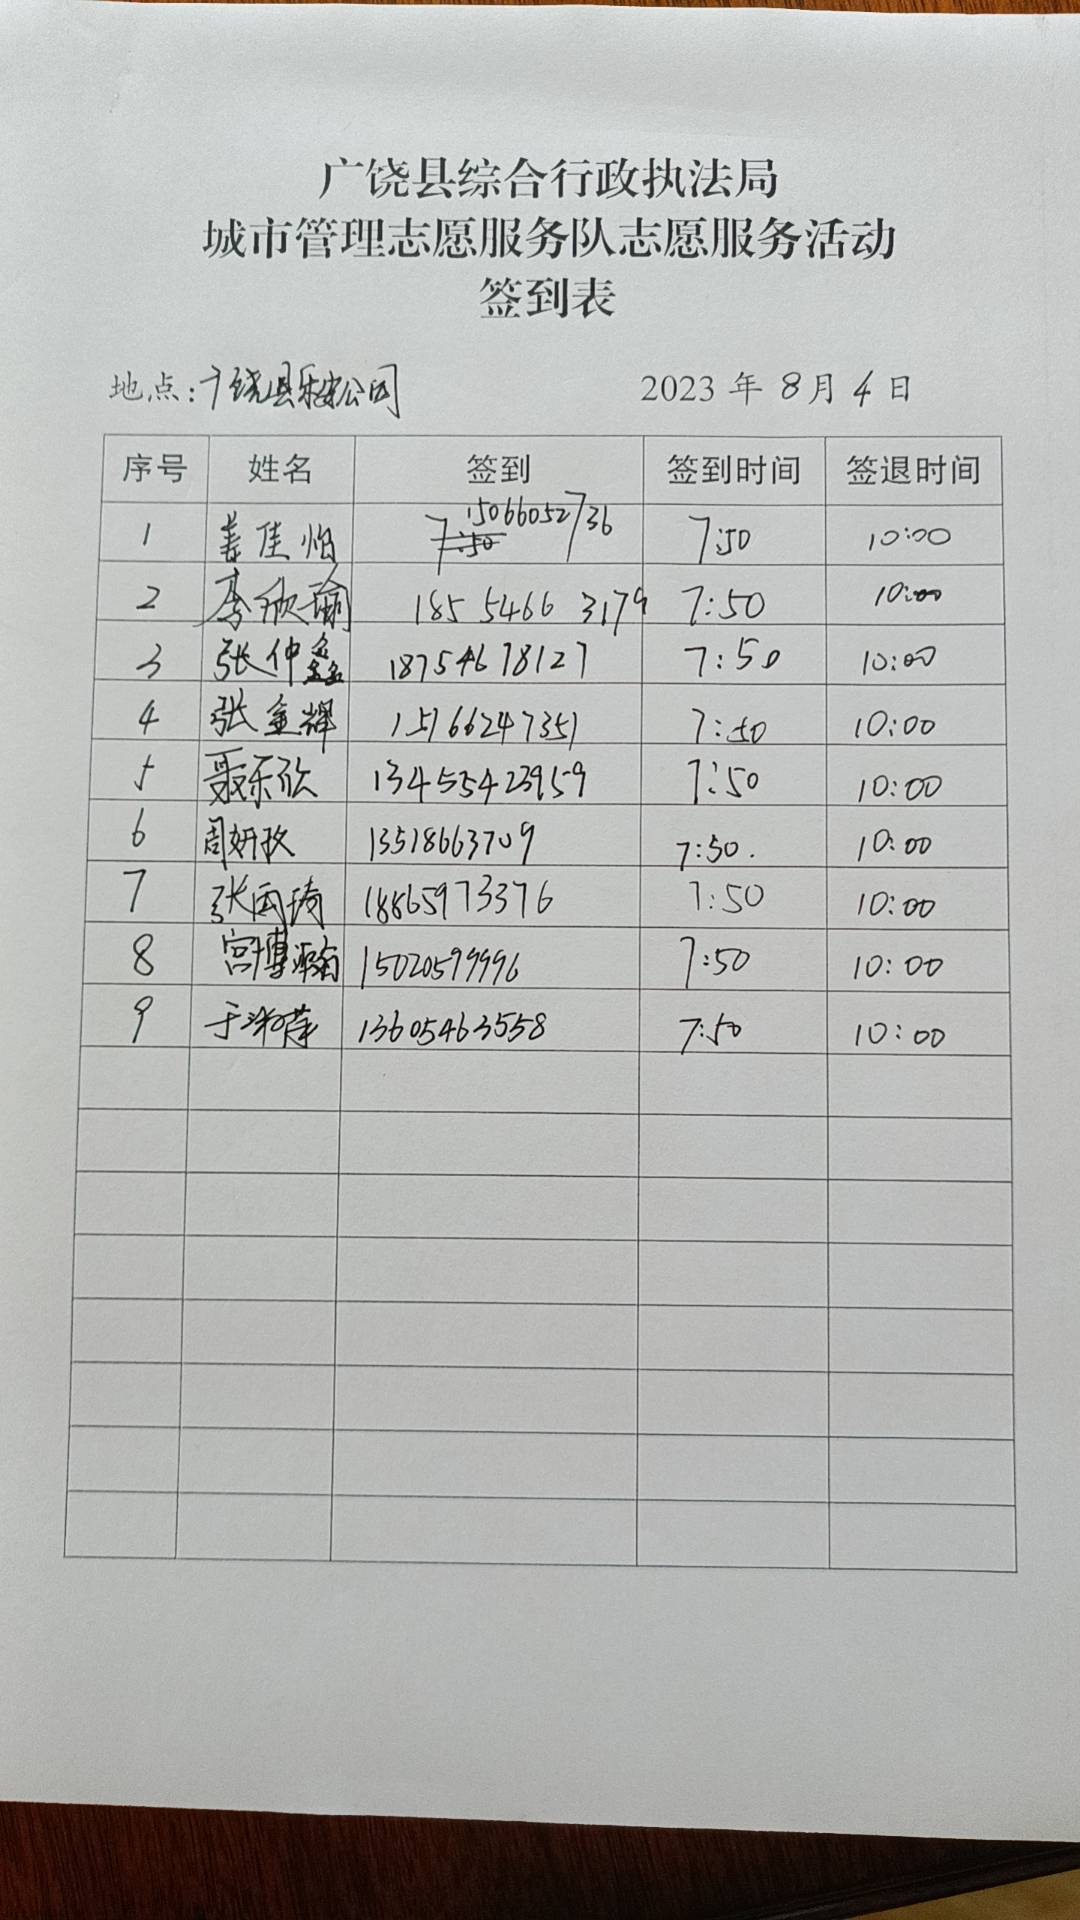 广饶县综合行政执法局
城市管理志愿服务队志愿服务活动
签到表
地点:广饶县乐安公司 2023 年 8 月 4 日
序号 姓名 签到 签到时间 签退时间
1 姜佳怡 15066052736 7:50 10:00
2 李欣瑜 185 5466 3179 7:50 10:00
3 张仲鑫 18754678127 7:50 10:00
4 张金辉 15166247351 7:50 10:00
5 聂乐欣 13455423959 7:50 10:00
6 周妍孜 13518663709 7:50. 10:00
7 张雨琦 18865973376 7:50 10:00
8 宫博瀚 15020599996 7:50 10:00
9 于 13605463558 7:50 10:00